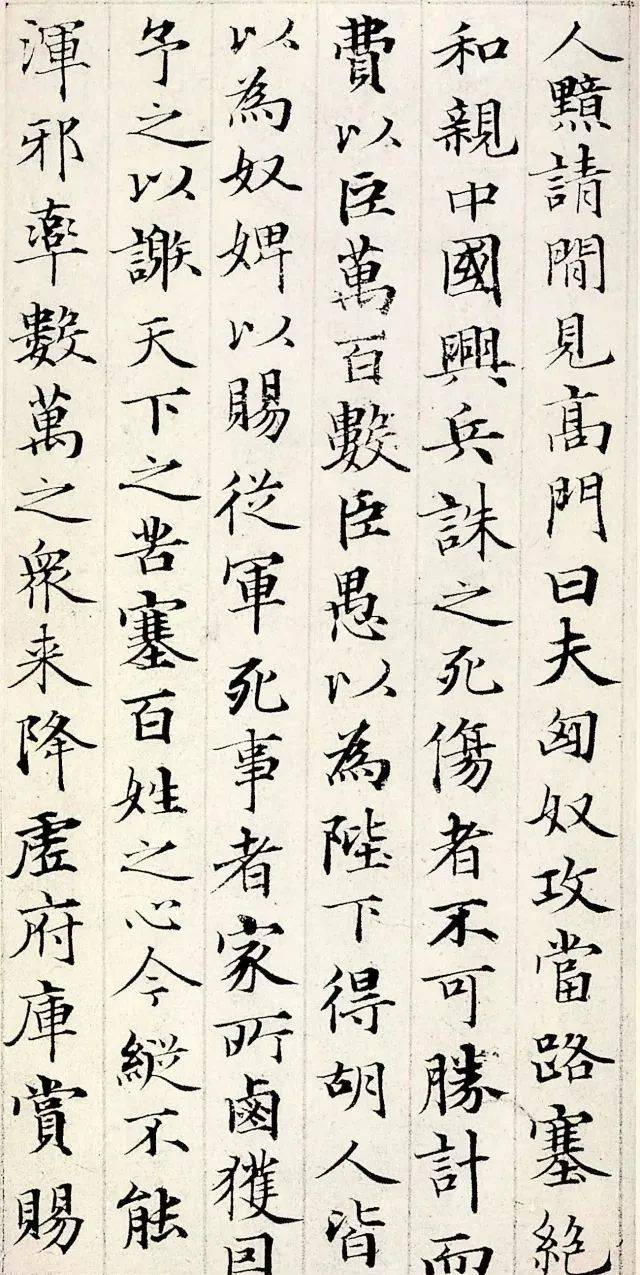 人黥請閒見高門曰夫匈奴攻當路塞絶
和親中國興兵誅之死傷者不可勝計而
費以臣萬百數臣愚以為陛下得胡人皆
以為奴婢以賜從軍死事者家所鹵獲因
予之以謝天下之苦塞百姓之心今縱不能
渾邪率數萬之衆来降虛府庫賞賜